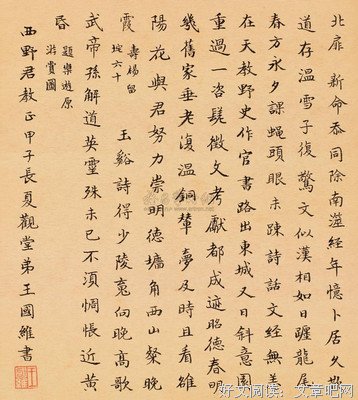 北扉新命忝同除南澨經年憶卜居久歎
道存溫雪子復驚文似漢相如日躔龍尾
春方永夕課蠅頭眼未疎詩話文經無恙
在天教野史作官書路出東城又日斜意園
重過咨嗟徵文考獻都成迹昭德春明
幾舊家垂老復溫銅輦夢及時且看雒
陽花與君努力崇明德墉角西山粲晚
霞 壽楊留
垞六十 玉谿詩得少陵魂向晚高歌
武帝孫解道英靈殊未已不須惆悵近黃
昏 題樂遊原
游賞圖
西野君教正甲子長夏觀堂弟王國維書
好文阅读：文章吧网